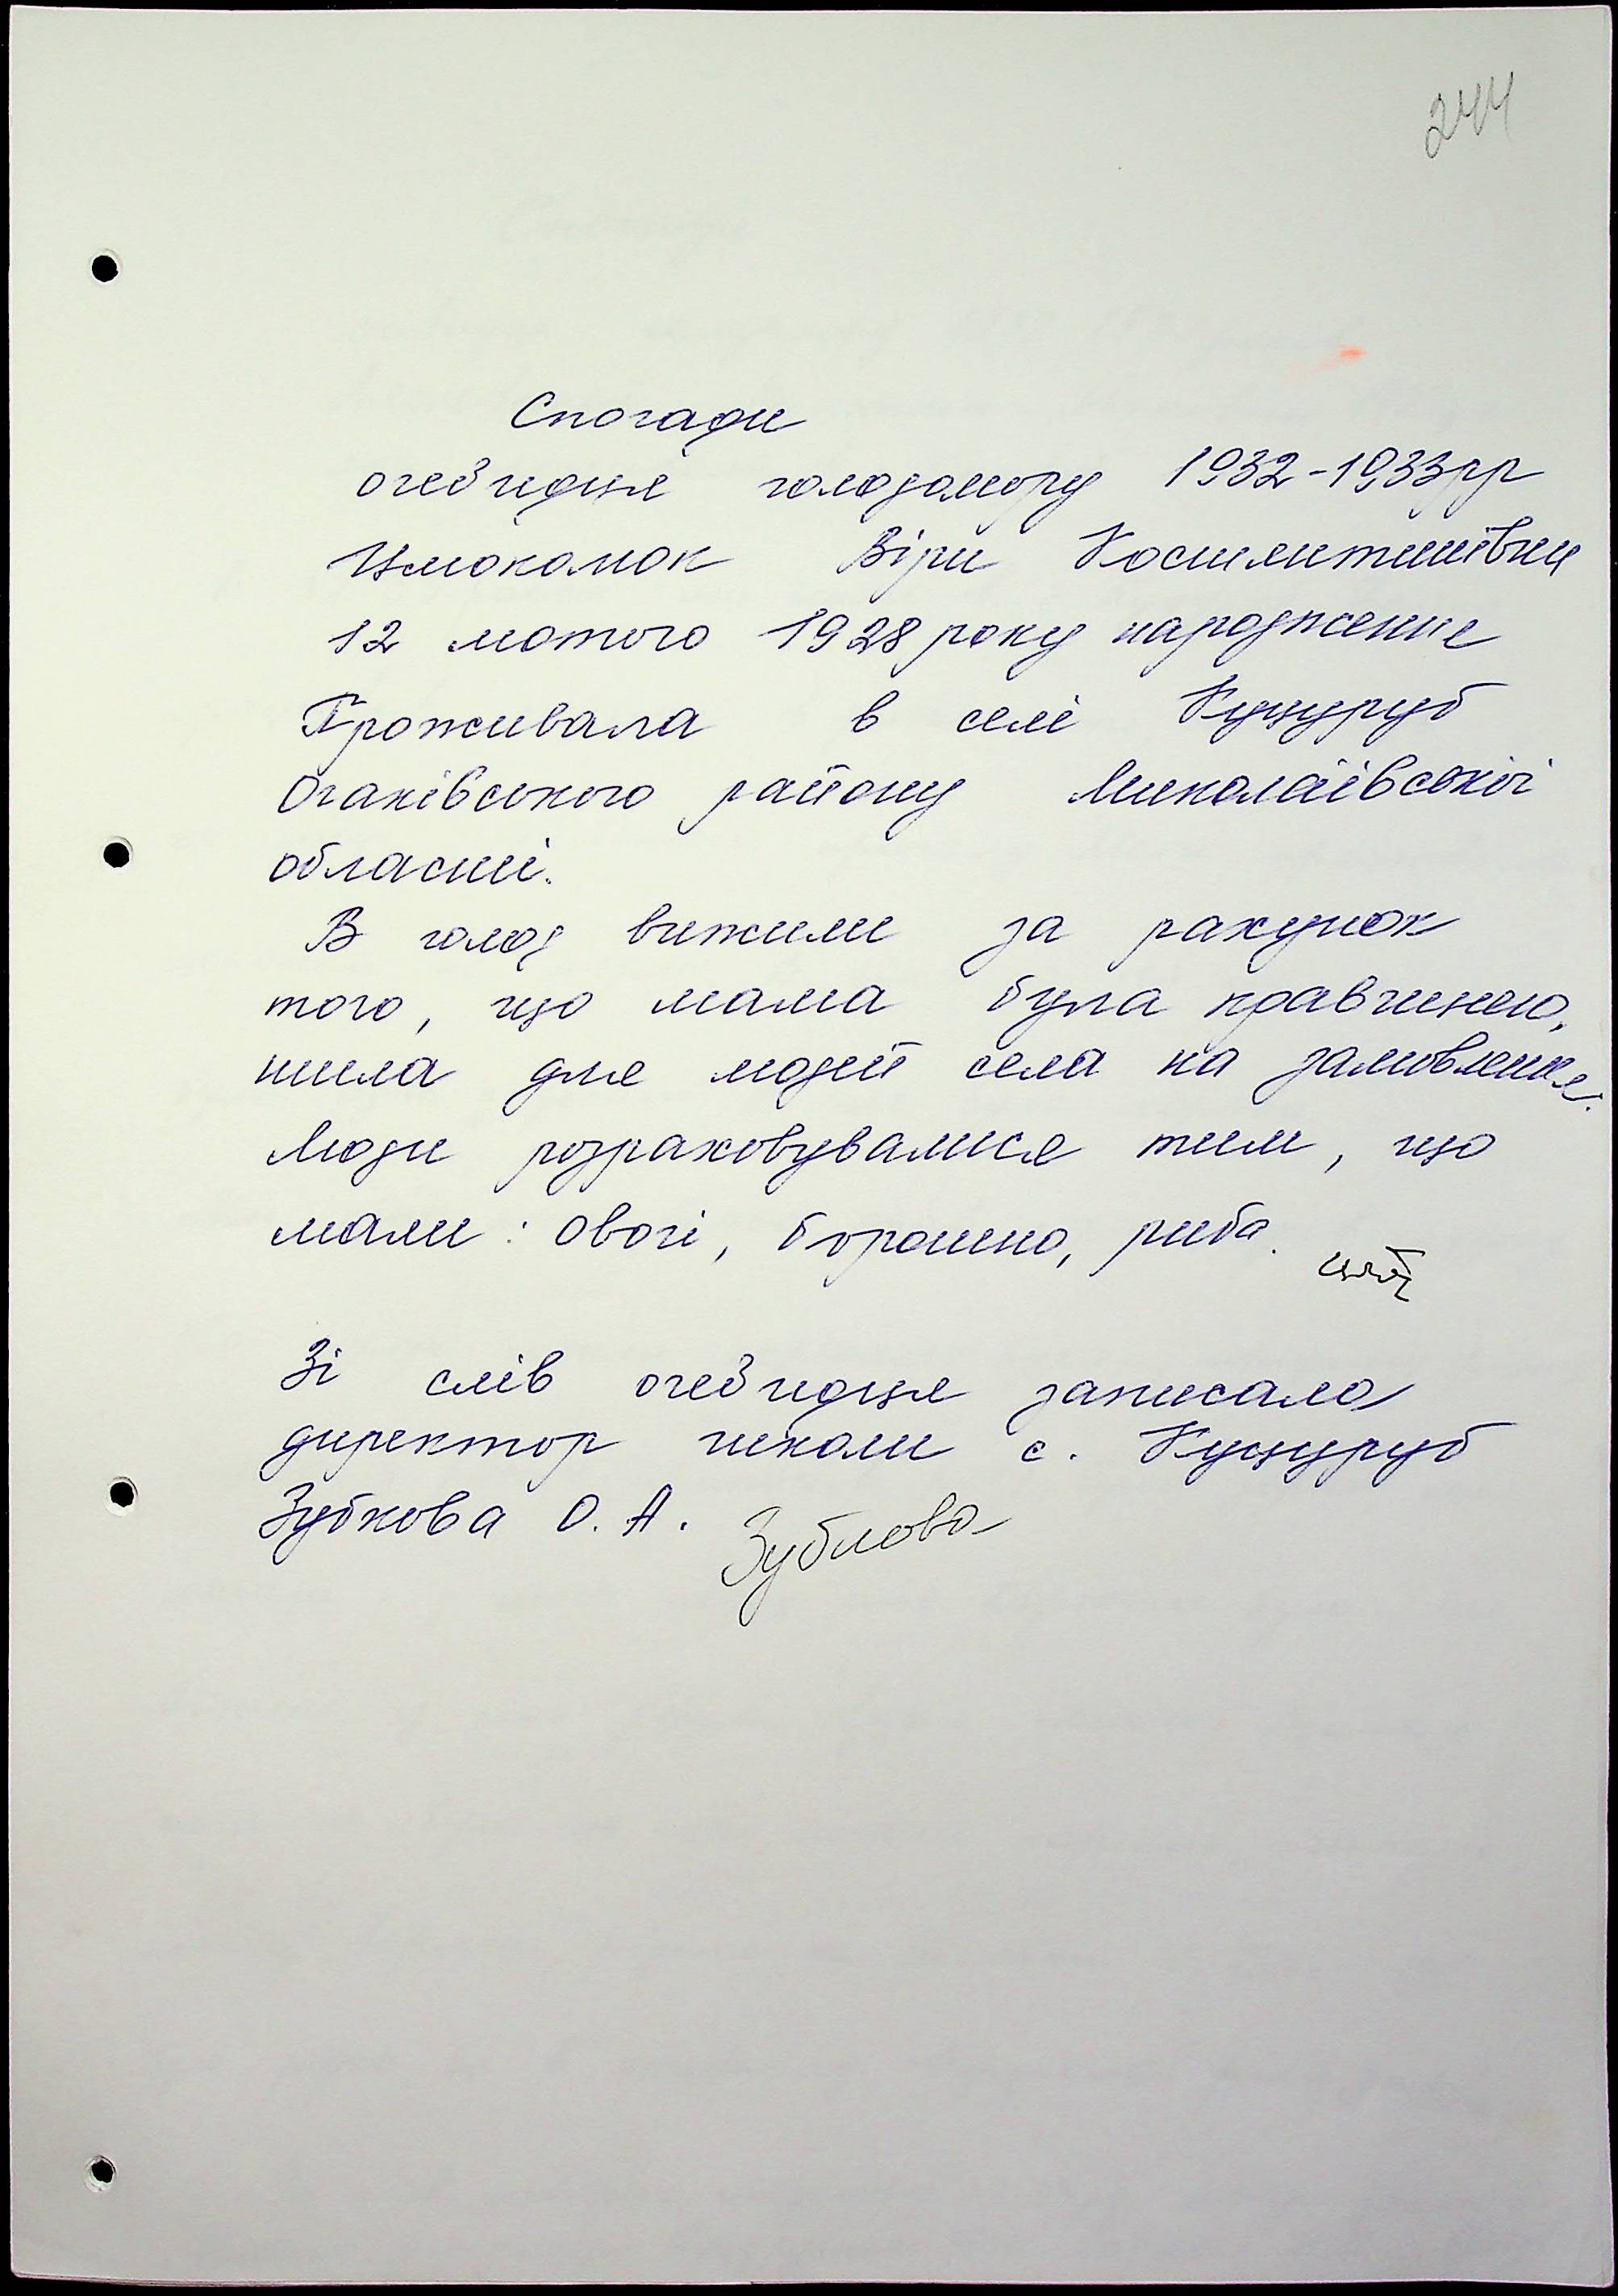 244
Спогади
очевидця голодомору 1932-1933рр
Цмоколюк Віри Костянтинівни
12 лютого 1928 року народження
Проживала в селі Куцуруб
Очаківського району Миколаївської
області.
В голод вижили за рахунок
того, що мама була кравчинею,
шила для людей села на замовлення.
Люди розраховувалися тим, що
мали: овочі, борошно, риба.
Зі слів очевидця записала
директор школи с. Куцуруб
Зубкова О. А. Зубкова